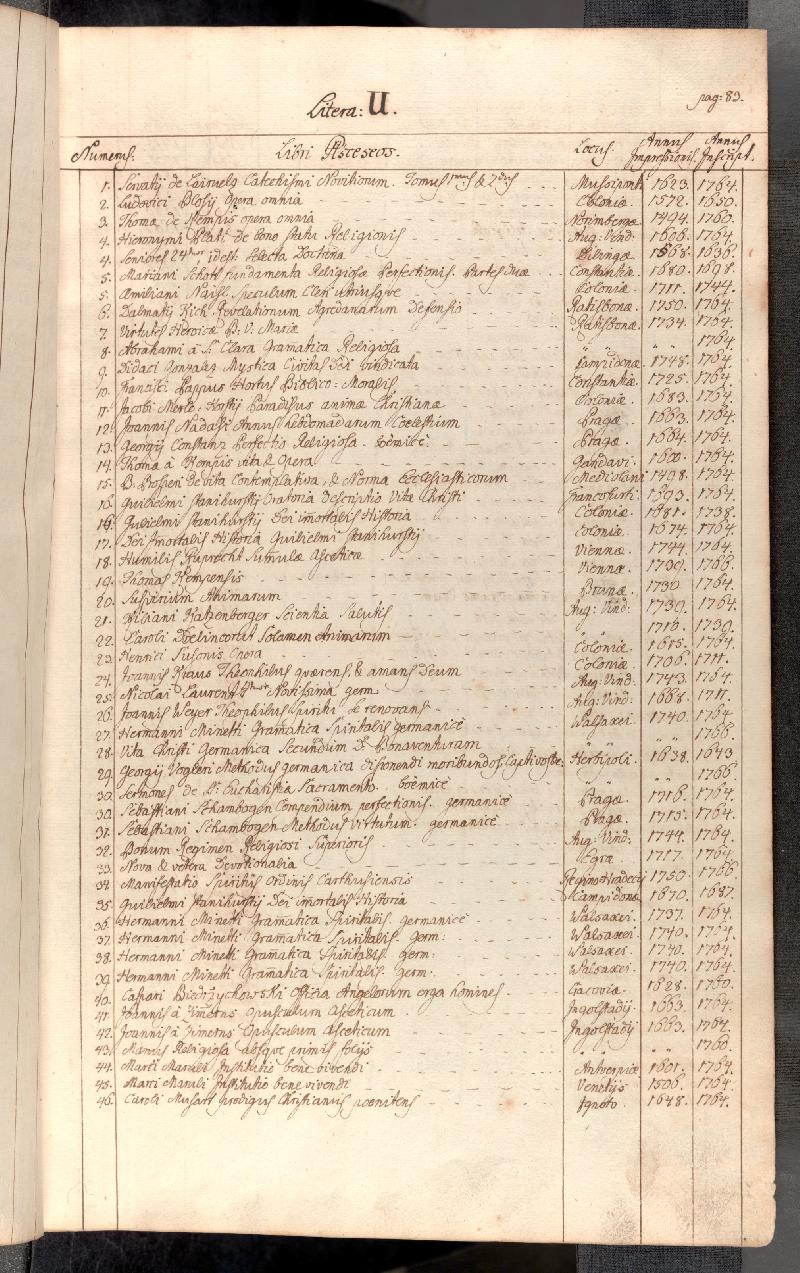 pag: 83.
Litera: U.
Numerus. Libri Asceseos. Locus. Annus Impressionis. Annus Inscript.
1. Servatij de Lairuelz Catechismi Novitiorum. Tomus 1mus & 2dus Mussiponti 1623. 1764.
2. Ludovici Blosij Opera omnia Coloniæ 1572. 1650.
3. Thomæ de Kempis opera omnia Norimbergæ 1494. 1760.
4. Hieronymi Plati De bono status Religionis Aug: Vind: 1606. 1764.
4. Seniores 24tuor, idest: Selecta Doctrina Dilingæ 1568. 1636.
5. Mariani Schott fundamenta Religiosæ Perfectionis. Partes duæ Constantiæ 1680. 1698.
5. Amiliani Naisl Speculum Cleri utriusque Coloniæ 1711. 1744.
6. Dalmatij Kick Revelationum Agredanarum Defensio Ratisbonæ. 1750. 1764.
7. Virtutes Heroicæ B. V. Mariæ Ratisbonæ. 1734. 1764.
8. Abrahami à S. Clara Gramatica Religiosa " " " " 1764.
9. Didaci Gonzalez Mystica Civitas Dei Vindicata Campidonæ 1748. 1764.
10. Francisci Pappus Hortus Biblico-Moralis Constantiæ 1725. 1764.
11. Jacobi Merlo-Horstij Paradisus animæ Christianæ Coloniæ 1683. 1764.
12. Joannis Nadasi Annus hebdomadarum Coelestium Pragæ 1663. 1764.
13. Georgij Constanz Perfectio Religiosa. boëmicè Pragæ 1664. 1764.
14. Thomæ à Kempis vita & Opera Gandavi. 1600. 1764.
15. B. Prosperi De vita Contemplativa, & Norma Ecclesiasticorum Mediolani 1498. 1764.
16. Guilhelmi Stanihursty Oratoria descriptio Vitæ Christi Francofurti. 1693. 1764.
16. Guilielmi Stanihursty Dei imortalis Historia Coloniæ 1681. 1738.
17. Dei imortalis Historia Guilielmi Stanihursty Coloniæ 1674. 1764.
18. Humilis Ruprecht Sumulæ Asceticæ Viennæ 1744. 1764.
19. Thomas Kempensis Viennæ 1739. 1766.
20. Suspirium Animarum Brunæ 1730 1764.
21. Kiliani Katzenberger Scientia Salutis Aug: Vind: 1730. 1764.
22. Caroli Drelincourt Solamen Animarum " " 1716. 1730.
23. Henrici Susonis Opera Coloniæ 1615. 1764.
24. Joannis Kraus Theophilus quærens, & amans Deum Coloniæ 1706. 1711.
25. Nicolai Laurent 4tuor Novissima germ. Aug: Vind: 1743. 1764.
26. Joannis Weyer Theophilus Spiritu se renovans Aug: Vind: 1668. 1711.
27. Hermanni Minetti Gramatica Spiritalis germanicè Walsaxei 1740. 1764
28. Vita Christi Germanica Secundum D. Bonaventuram " " " " 1766.
29. Georgij Vogleri Methodus germanica disponendi moribundos, Captivosque Herbipoli. 1638. 1643
30. Sermones de SS. Eucharistiæ Sacramento. boëmicè " " " " 1766.
30. Sebastiani Schambogen Compendium perfectionis. germanicè Pragæ. 1716. 1764.
31. Sebastiani Schambogen Methodus virtutum. germanicè Pragæ. 1715. 1764.
32. Bonum Regimen Religiosi Superioris Aug: Vind: 1744. 1764.
33. Nova & vetera Devotionalia Egra. 1717. 1764
34. Manifestatio Spiritus Ordinis Carthusiensis Regino Hradecij 1750. 1766.
35. Guilielmi Stanihursty Dei imortalis Historia Campidonæ 1670. 1687.
36. Hermanni Minetti Gramatica Spiritalis. germanicè Walsaxei. 1737. 1764.
37. Hermanni Minetti Gramatica Spiritalis. Germ: Walsaxei. 1740. 1764.
38. Hermanni Minetti Gramatica Spiritalis germ: Walsaxei. 1740. 1764.
39. Hermanni Minetti Gramatica Spiritalis. germ: Walsaxei. 1740. 1764.
40. Caspari Biedrzychowski Officia Angelorum erga homines Cracoviæ. 1628. 1760.
41. Joannis à Jimenes Opusculum Asceticum Ingolstadij. 1663. 1764.
42. Joannis à Jimenes Opusculum Asceticum Ingolstadij 1663. 1764.
43. Mensis Religiosa absque primis folijs " " " " 1766.
44. Marci Maruli Institutio bene vivendi Antverpiæ 1601. 1764.
45. Marci Maruli Institutio bene vivendi Venetijs 1506. 1764.
46. Caroli Musart prodigus Christianus poenitens Ignoto. 1648. 1764.